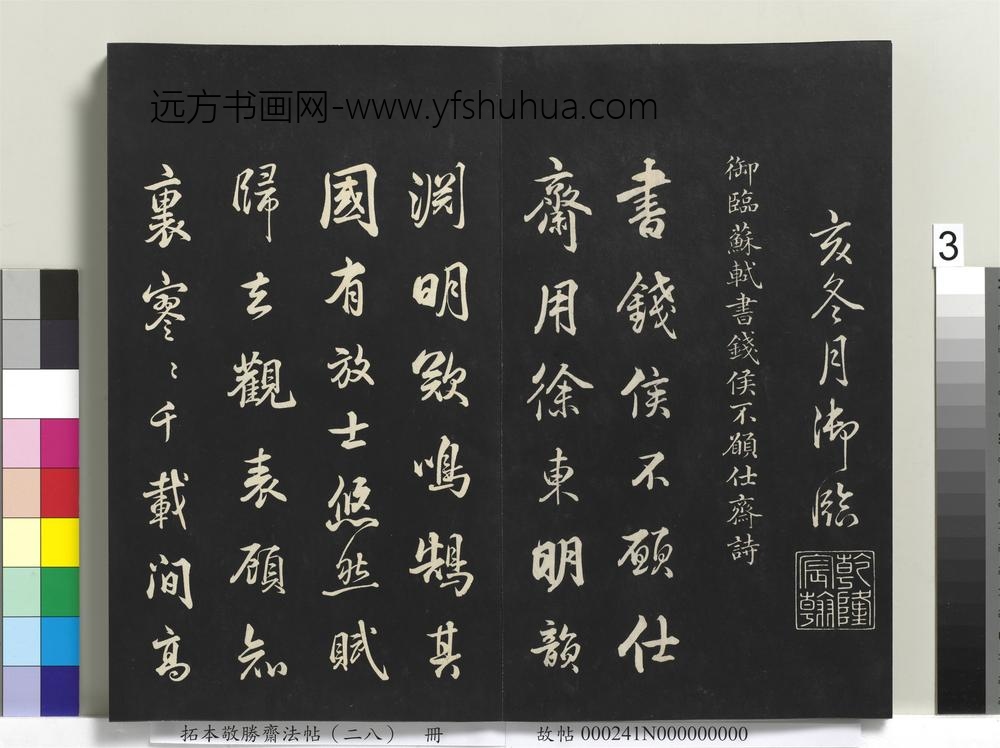 远方书画网-www.yfshuhua.com
亥冬月御臨
乾隆
宸翰
御臨蘇軾書錢侯不願仕齋詩
書錢侯不願仕
齋用徐東明韻
淵明歎鳴鵠其
國有放士悠然賦
歸去觀表顧知
裏寥〻千載間高
3
拓本敬勝齋法帖(二八) 冊
故帖 000241N000000000